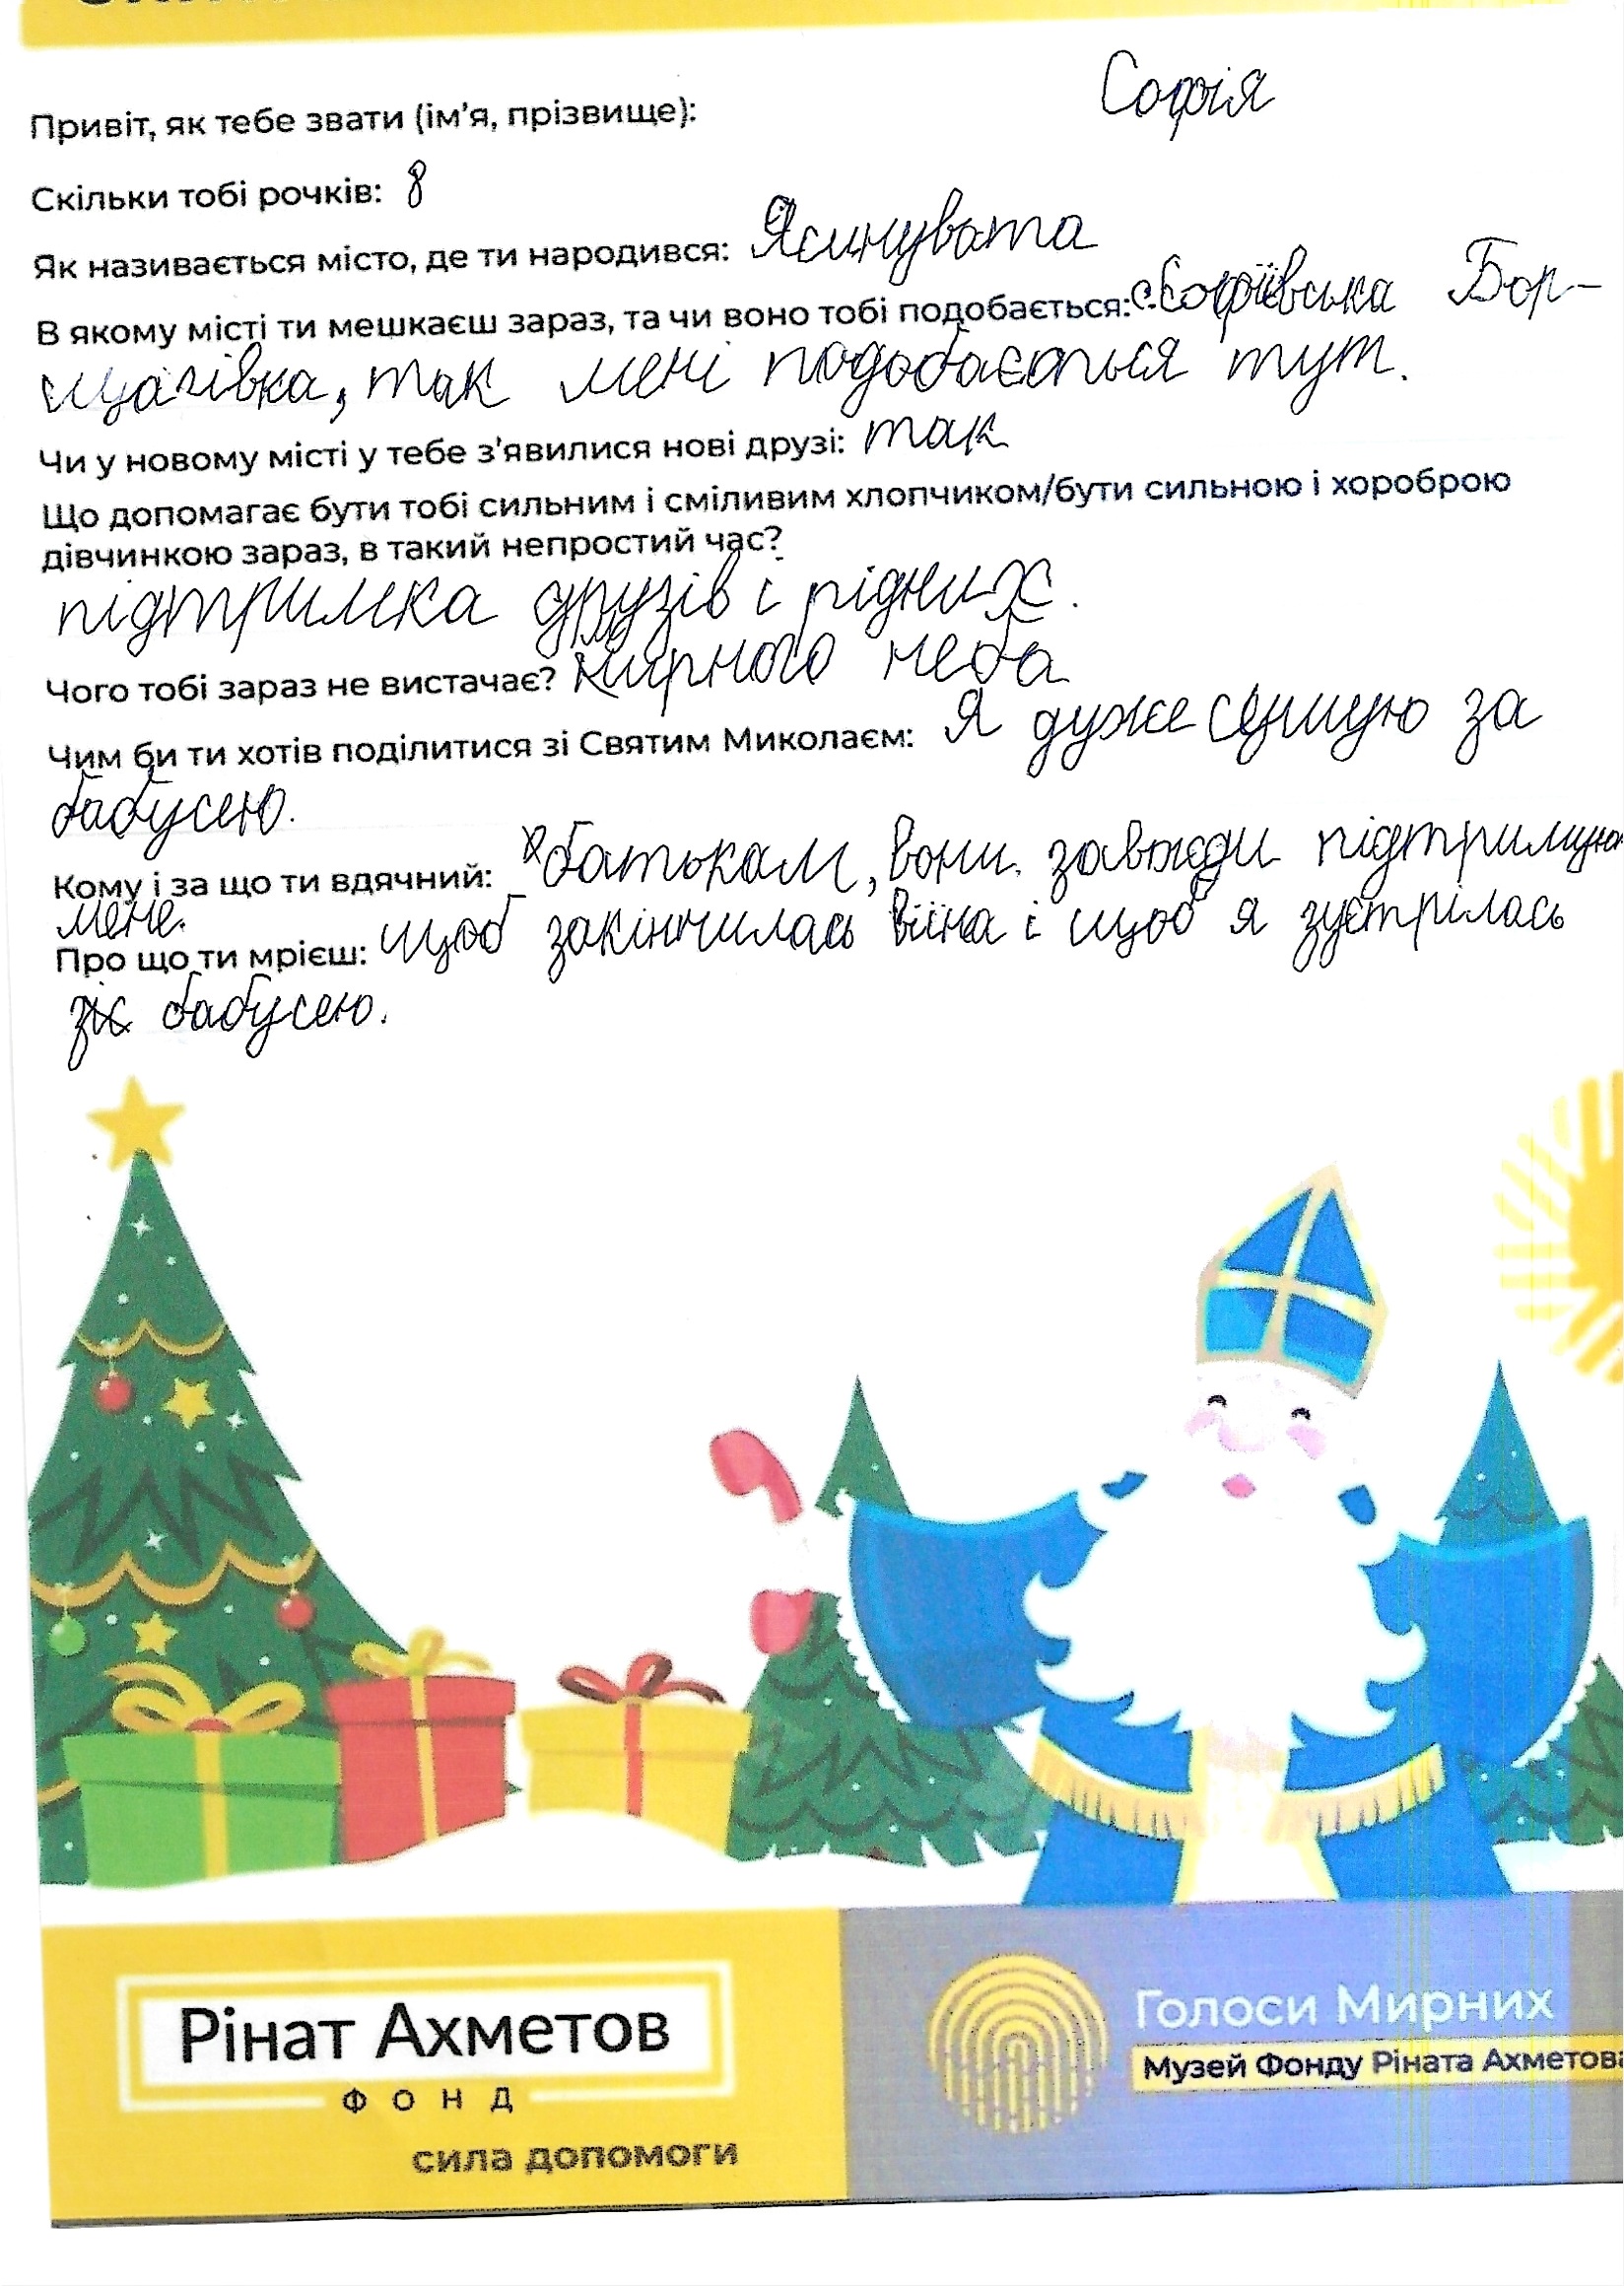 Софія
Привіт, як тебе звати (ім'я, прізвище):
Скільки тобі рочків: 8
Як називається місто, де ти народився: Ясинувата
В якому місті ти мешкаєш зараз, та чи воно тобі подобається: Софіївська Бор-
щагівка, так мені подобається тут.
Чи у новому місті у тебе з'явилися нові друзі: так
Що допомагає бути тобі сильним і сміливим хлопчиком/бути сильною і хороброю
дівчинкою зараз, в такий непростий час?
підтримка друзів і рідних.
Чого тобі зараз не вистачає? мирного неба
Чим би ти хотів поділитися зі Святим Миколаєм: Я дуже сумую за
бабусею.
Кому і за що ти вдячний: батькам, вони завжди підтримую
мене.
Про що ти мрієш: щоб закінчилась війна і щоб я зустрілась
з бабусею.
Рінат Ахметов
ФОНД
сила допомоги
Голоси Мирних
Музей Фонду Ріната Ахметова